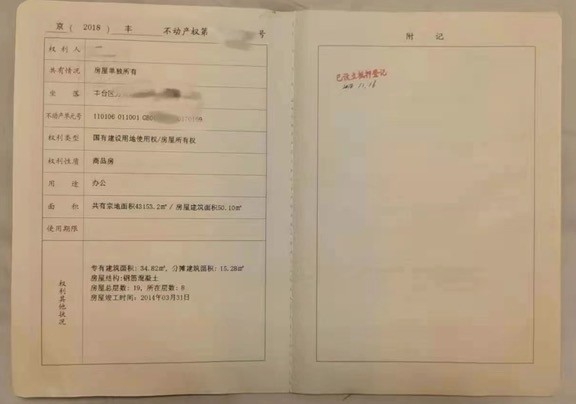 京( 2018 ) 不动产权第 号
权利人
共有情况 房屋单独所有
坐落 丰台区
不动产单元号 110106 011001
权利类型 国有建设用地使用权/房屋所有权
权利性质 商品房
用途 办公
面积 共有宗地面积43153.2㎡ / 房屋建筑面积
使用期限
权利其他状况
专有建筑面积: 54.82㎡, 分摊建筑面积: 15.28㎡
房屋结构:钢筋混凝土
房屋总层数: 19, 所在层数: 8
房屋竣工时间: 2014年03月31日
附记
已设立抵押登记